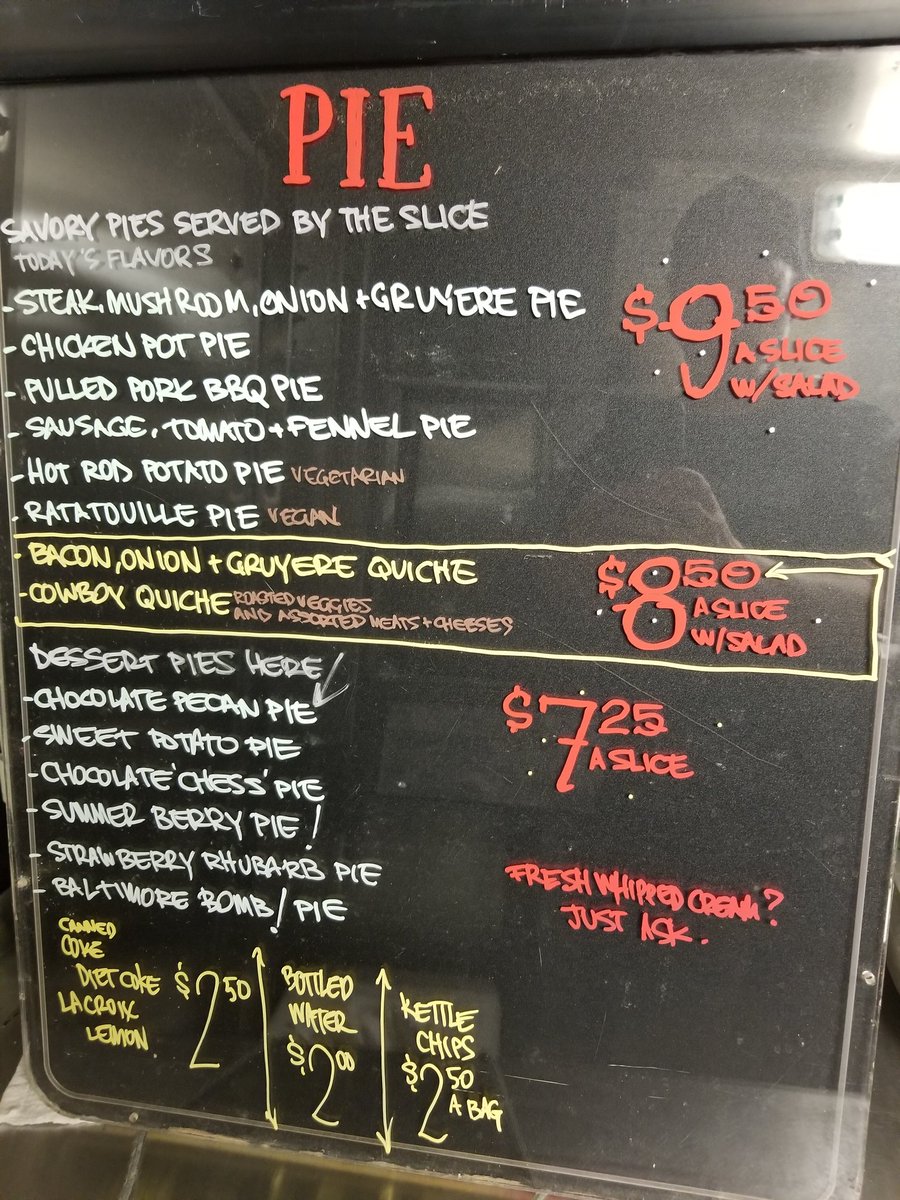 PIE
SAVORY PIES SERVED BY THE SLICE
TODAY'S FLAVORS
- STEAK, MUSHROOM, ONION + GRUYERE PIE
- CHICKEN POT PIE
- PULLED PORK BBQ PIE
- SAUSAGE, TOMATO + FENNEL PIE
- HOT ROD POTATO PIE VEGETARIAN
- RATATOUILLE PIE VEGAN
$9.50
A SLICE
W/SALAD
- BACON, ONION + GRUYERE QUICHE
- COWBOY QUICHE ROASTED VEGGIES
AND ASSORTED MEATS + CHEESES
$8.50
A SLICE
W/SALAD
DESSERT PIES HERE
- CHOCOLATE PECAN PIE
- SWEET POTATO PIE
- CHOCOLATE 'CHESS' PIE
- SUMMER BERRY PIE!
- STRAWBERRY RHUBARB PIE
- BALTIMORE BOMB! PIE
$7.25
A SLICE
FRESH WHIPPED CREAM?
JUST ASK.
CANNED
COKE
DIET COKE
LACROIX
LEMON
$2.50
BOTTLED
WATER
$2.00
KETTLE
CHIPS
$2.50
A BAG